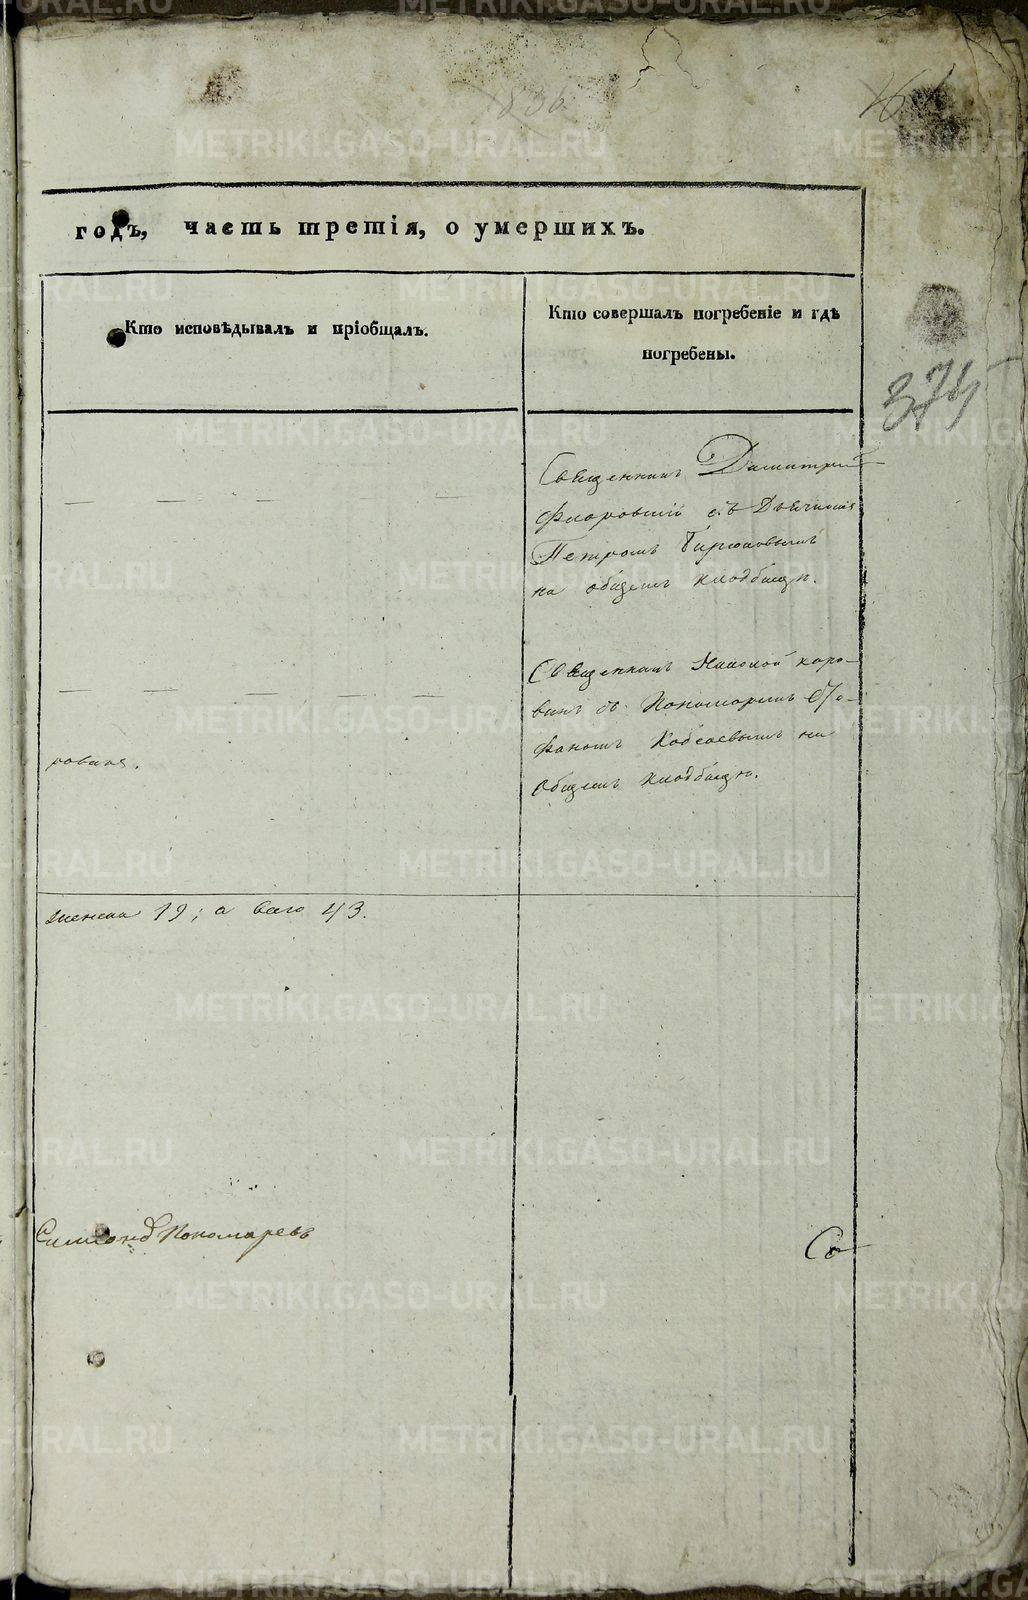 1836
годъ, часть третія, о умершихъ.
Кто исповѣдывалъ и пріобщалъ.
Кто совершалъ погребеніе и гдѣ
погребены.
375
Священникъ Димитрій
Флоровскій съ Дьячкомъ
Петромъ Бирюковымъ
на общемъ кладбищѣ.
Священникъ Николай Коро-
винъ съ Пономаремъ Сте-
фаномъ Кобсаевымъ на
общемъ кладбищѣ.
рована.
женска 19; а всего 43.
Симеонъ Пономаревъ
Св
METRIKI.GASO-URAL.RU